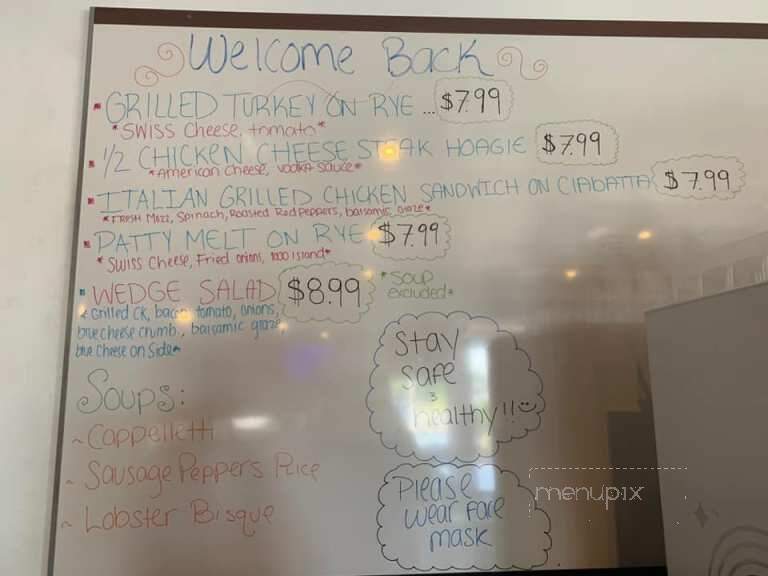 Welcome Back
GRILLED TURKEY ON RYE ... $7.99
*SWISS Cheese, tomato*
1/2 CHICKEN CHEESE STEAK HOAGIE $7.99
*American Cheese, vodka sauce*
ITALIAN GRILLED CHICKEN SANDWICH ON CIABATTA $7.99
*FRESH Mozz, Spinach, Roasted Red Peppers, balsamic glaze*
PATTY MELT ON RYE $7.99
*Swiss Cheese, Fried onions, 1000 Island*
WEDGE SALAD $8.99 *Soup
excluded*
* Grilled CK, bacon, tomato, onions,
blue cheese crumb., balsamic glaze,
blue cheese on side*
Soups:
~Cappelletti
~Sausage Peppers Rice
~Lobster Bisque
Stay
Safe
&
healthy!!
Please
wear face
mask
menupix